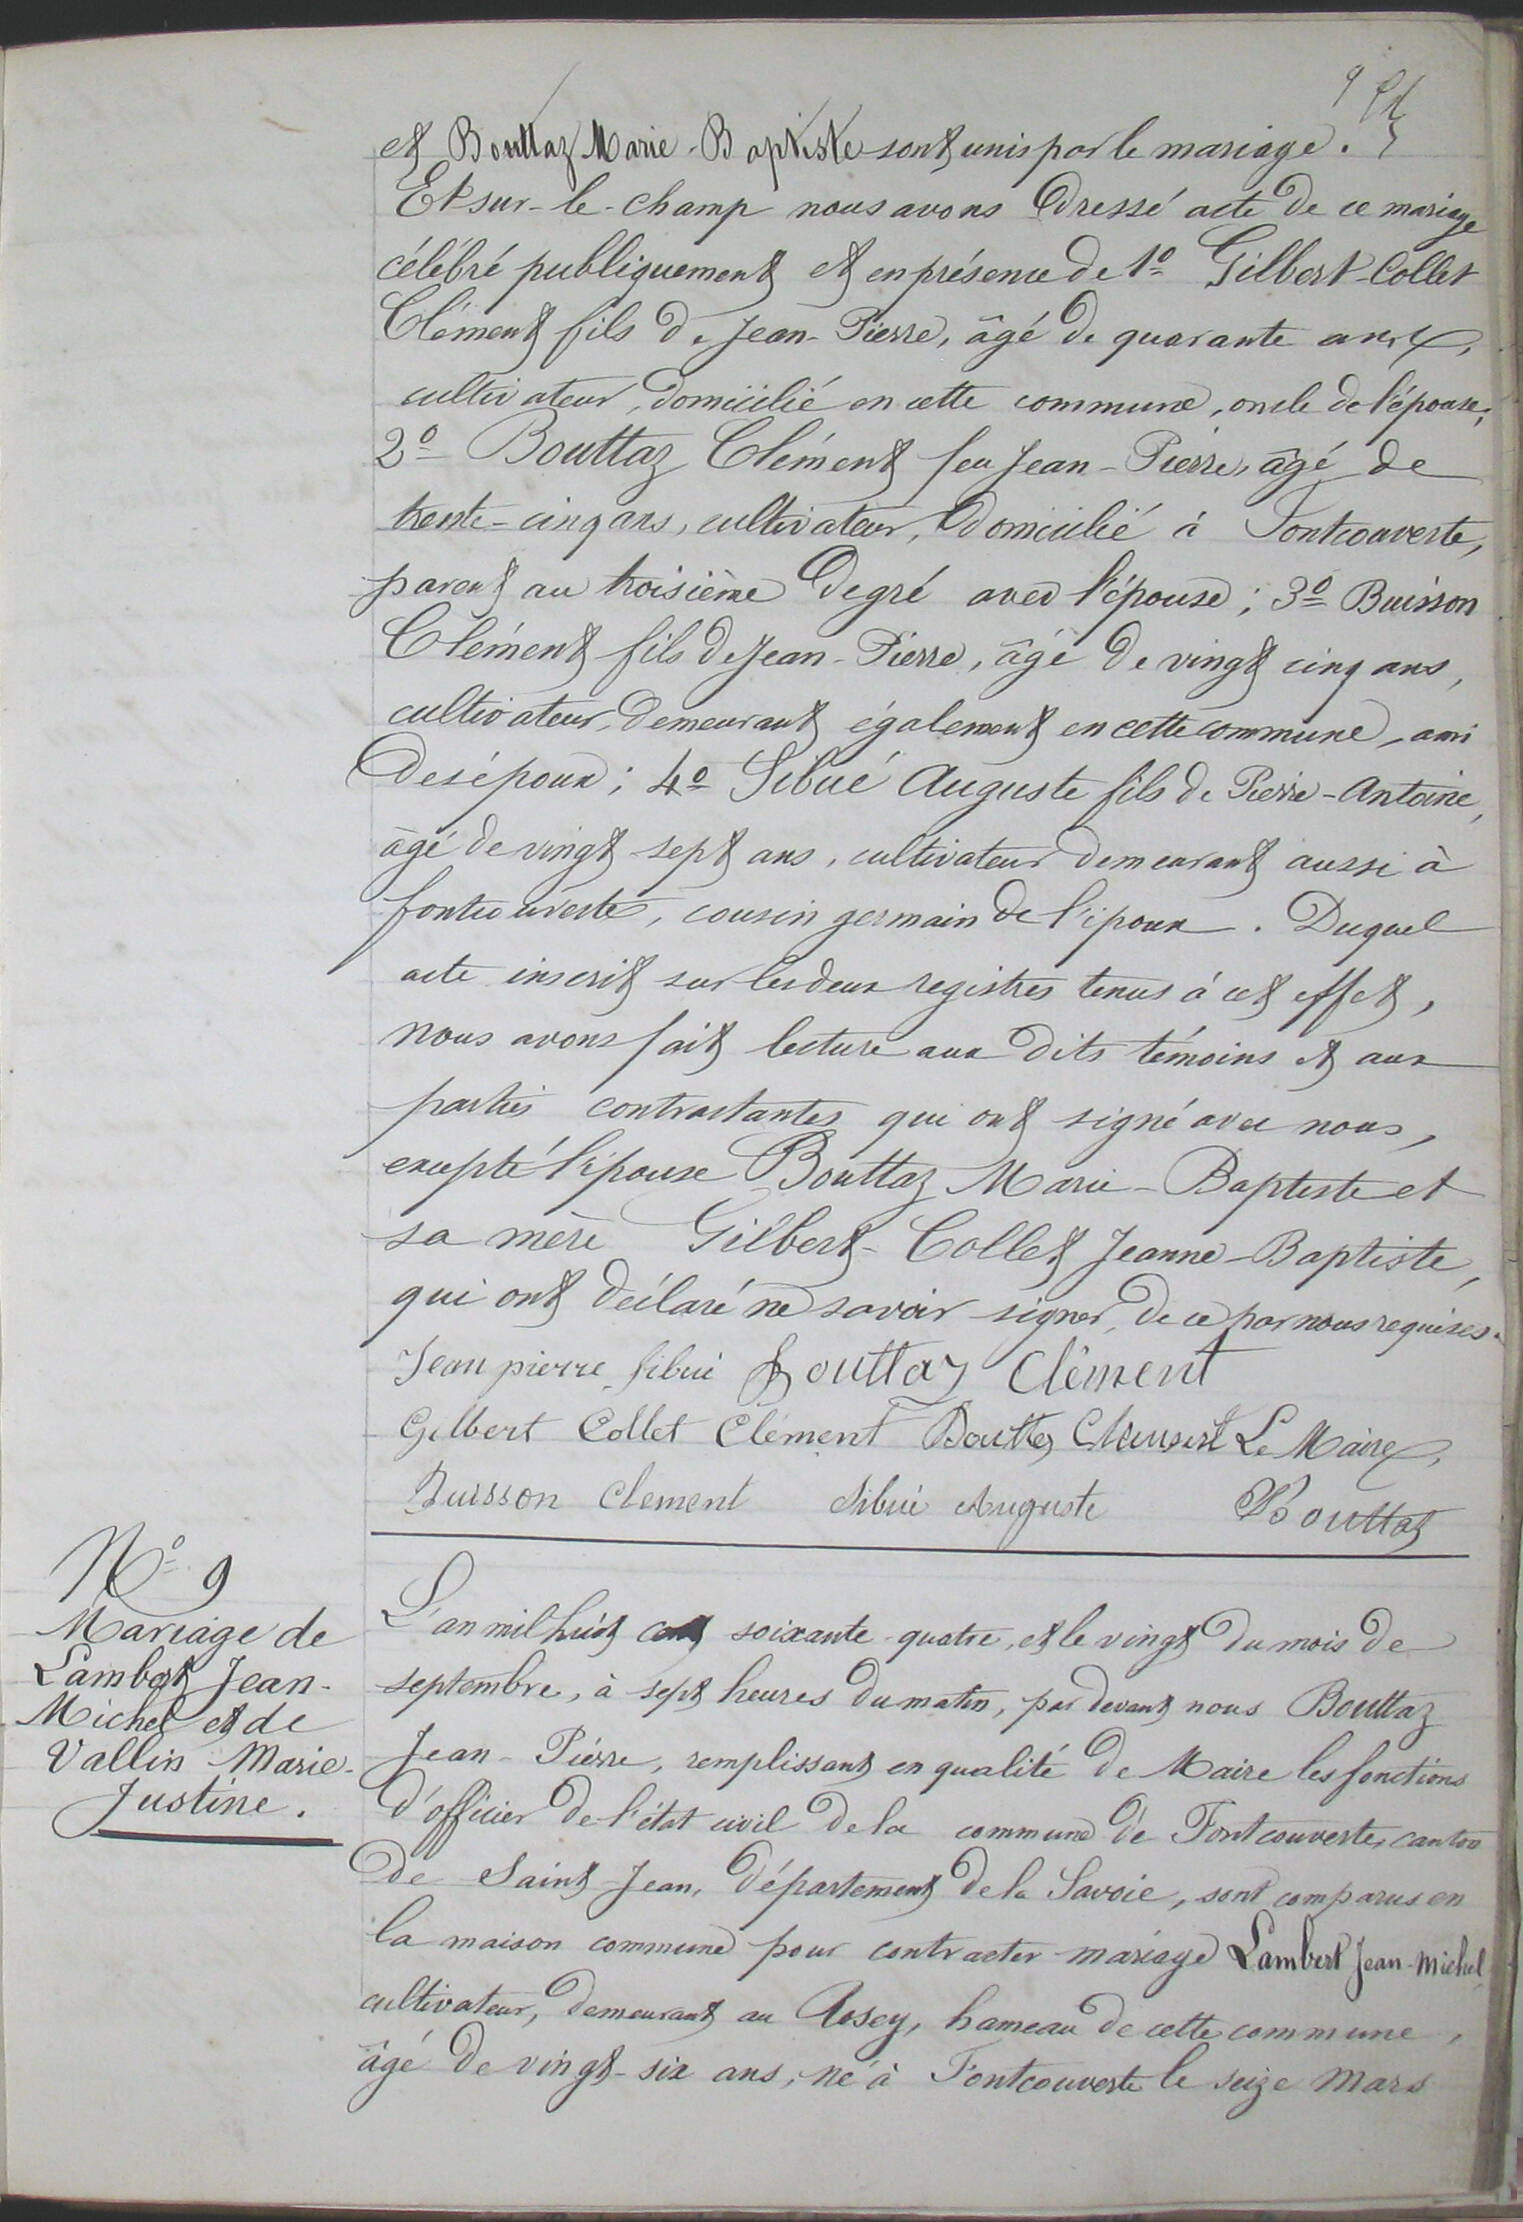 9
et Bouttaz Marie-Baptiste sont unis par le mariage.
Et sur-le-champ nous avons dressé acte de ce mariage
célébré publiquement et en présence de 1º Gilbert-Collet
Clément fils de Jean-Pierre, âgé de quarante ans,
cultivateur, domicilié en cette commune, oncle de l'épouse;
2º Bouttaz Clément feu Jean-Pierre, âgé de
trente-cinq ans, cultivateur, domicilié à Fontcouverte,
parent au troisième degré avec l'épouse; 3º Buisson
Clément fils de Jean-Pierre, âgé de vingt cinq ans,
cultivateur, demeurant également en cette commune, ami
des époux; 4º Sibué Auguste fils de Pierre-Antoine,
âgé de vingt-sept ans, cultivateur demeurant aussi à
fontcouverte, cousin germain de l'époux. Duquel
acte inscrit sur les deux registres tenus à cet effet,
nous avons fait lecture aux dits témoins et aux
parties contractantes qui ont signé avec nous,
excepté l'épouse Bouttaz Marie-Baptiste et
sa mère Gilbert-Collet Jeanne-Baptiste,
qui ont déclaré ne savoir signer, de ce par nous requises.
Jean pierre Sibué Bouttaz Clément
Gilbert Collet Clément Bouttaz Clément Le Maire,
Buisson Clement Sibué Auguste Bouttaz
Nº 9
Mariage de
Lambert Jean-
Michel et de
Vallin Marie-
Justine.
L'an mil huit cent soixante-quatre, et le vingt du mois de
septembre, à sept heures du matin, par devant nous Bouttaz
Jean-Pierre, remplissant en qualité de Maire les fonctions
d'officier de l'état civil de la commune de Fontcouverte, canton
de Saint-Jean, département de la Savoie, sont comparus en
la maison commune pour contracter mariage Lambert Jean-Michel,
cultivateur, demeurant au Rosey, hameau de cette commune,
âgé de vingt-six ans, né à Fontcouverte le seize Mars